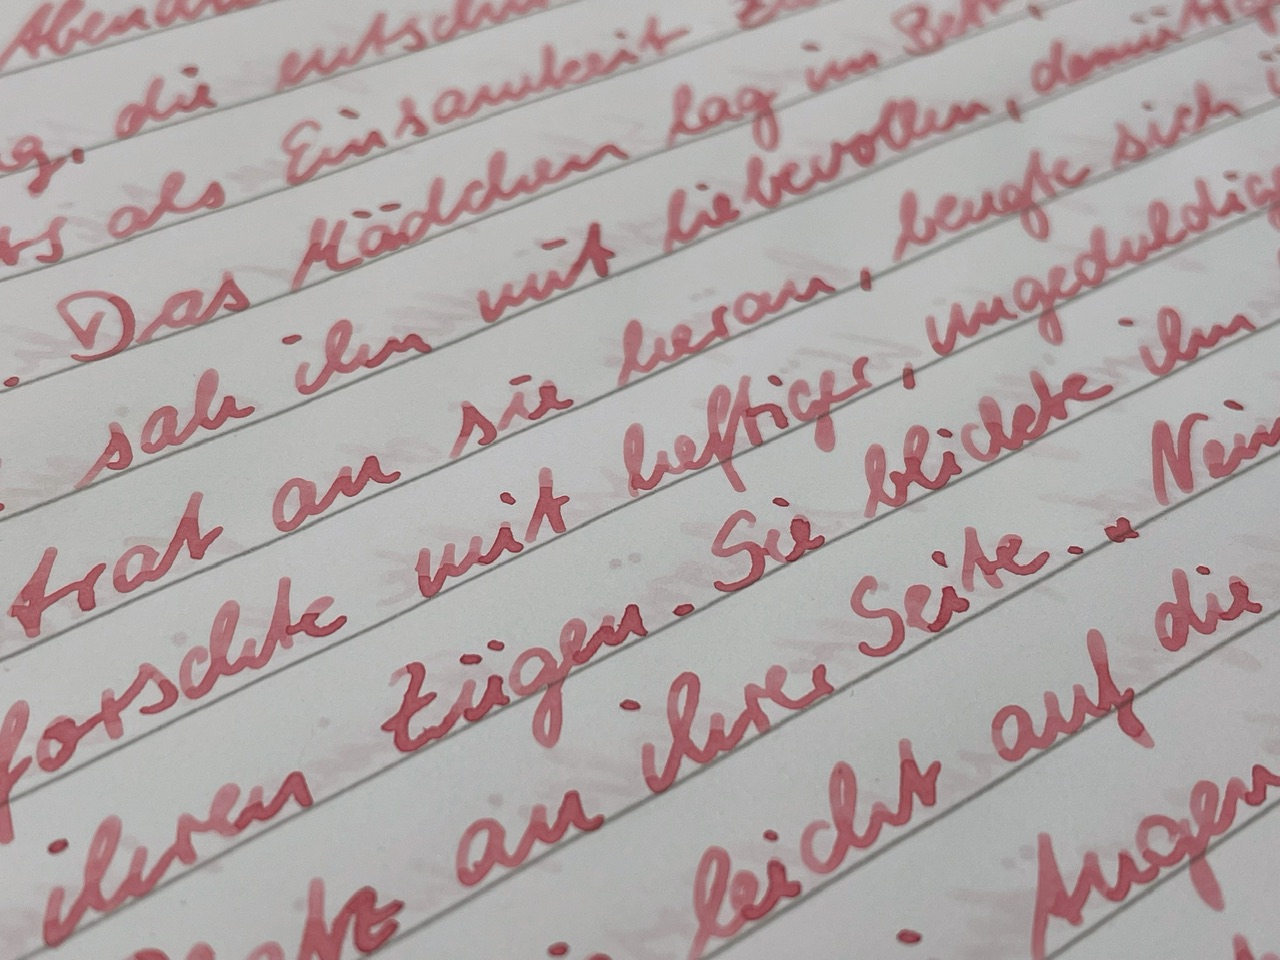 Abend
g, die entsch
ts als Einsamkeit
Das Mädchen lag im Bett,
sah ihn mit liebevollen, demütig
trat an sie heran, beugte sich
forschte mit heftiger, ungeduldig
ihren Zügen. Sie blickte ihn
an ihrer Seite. „Nein
leicht auf die
Augen